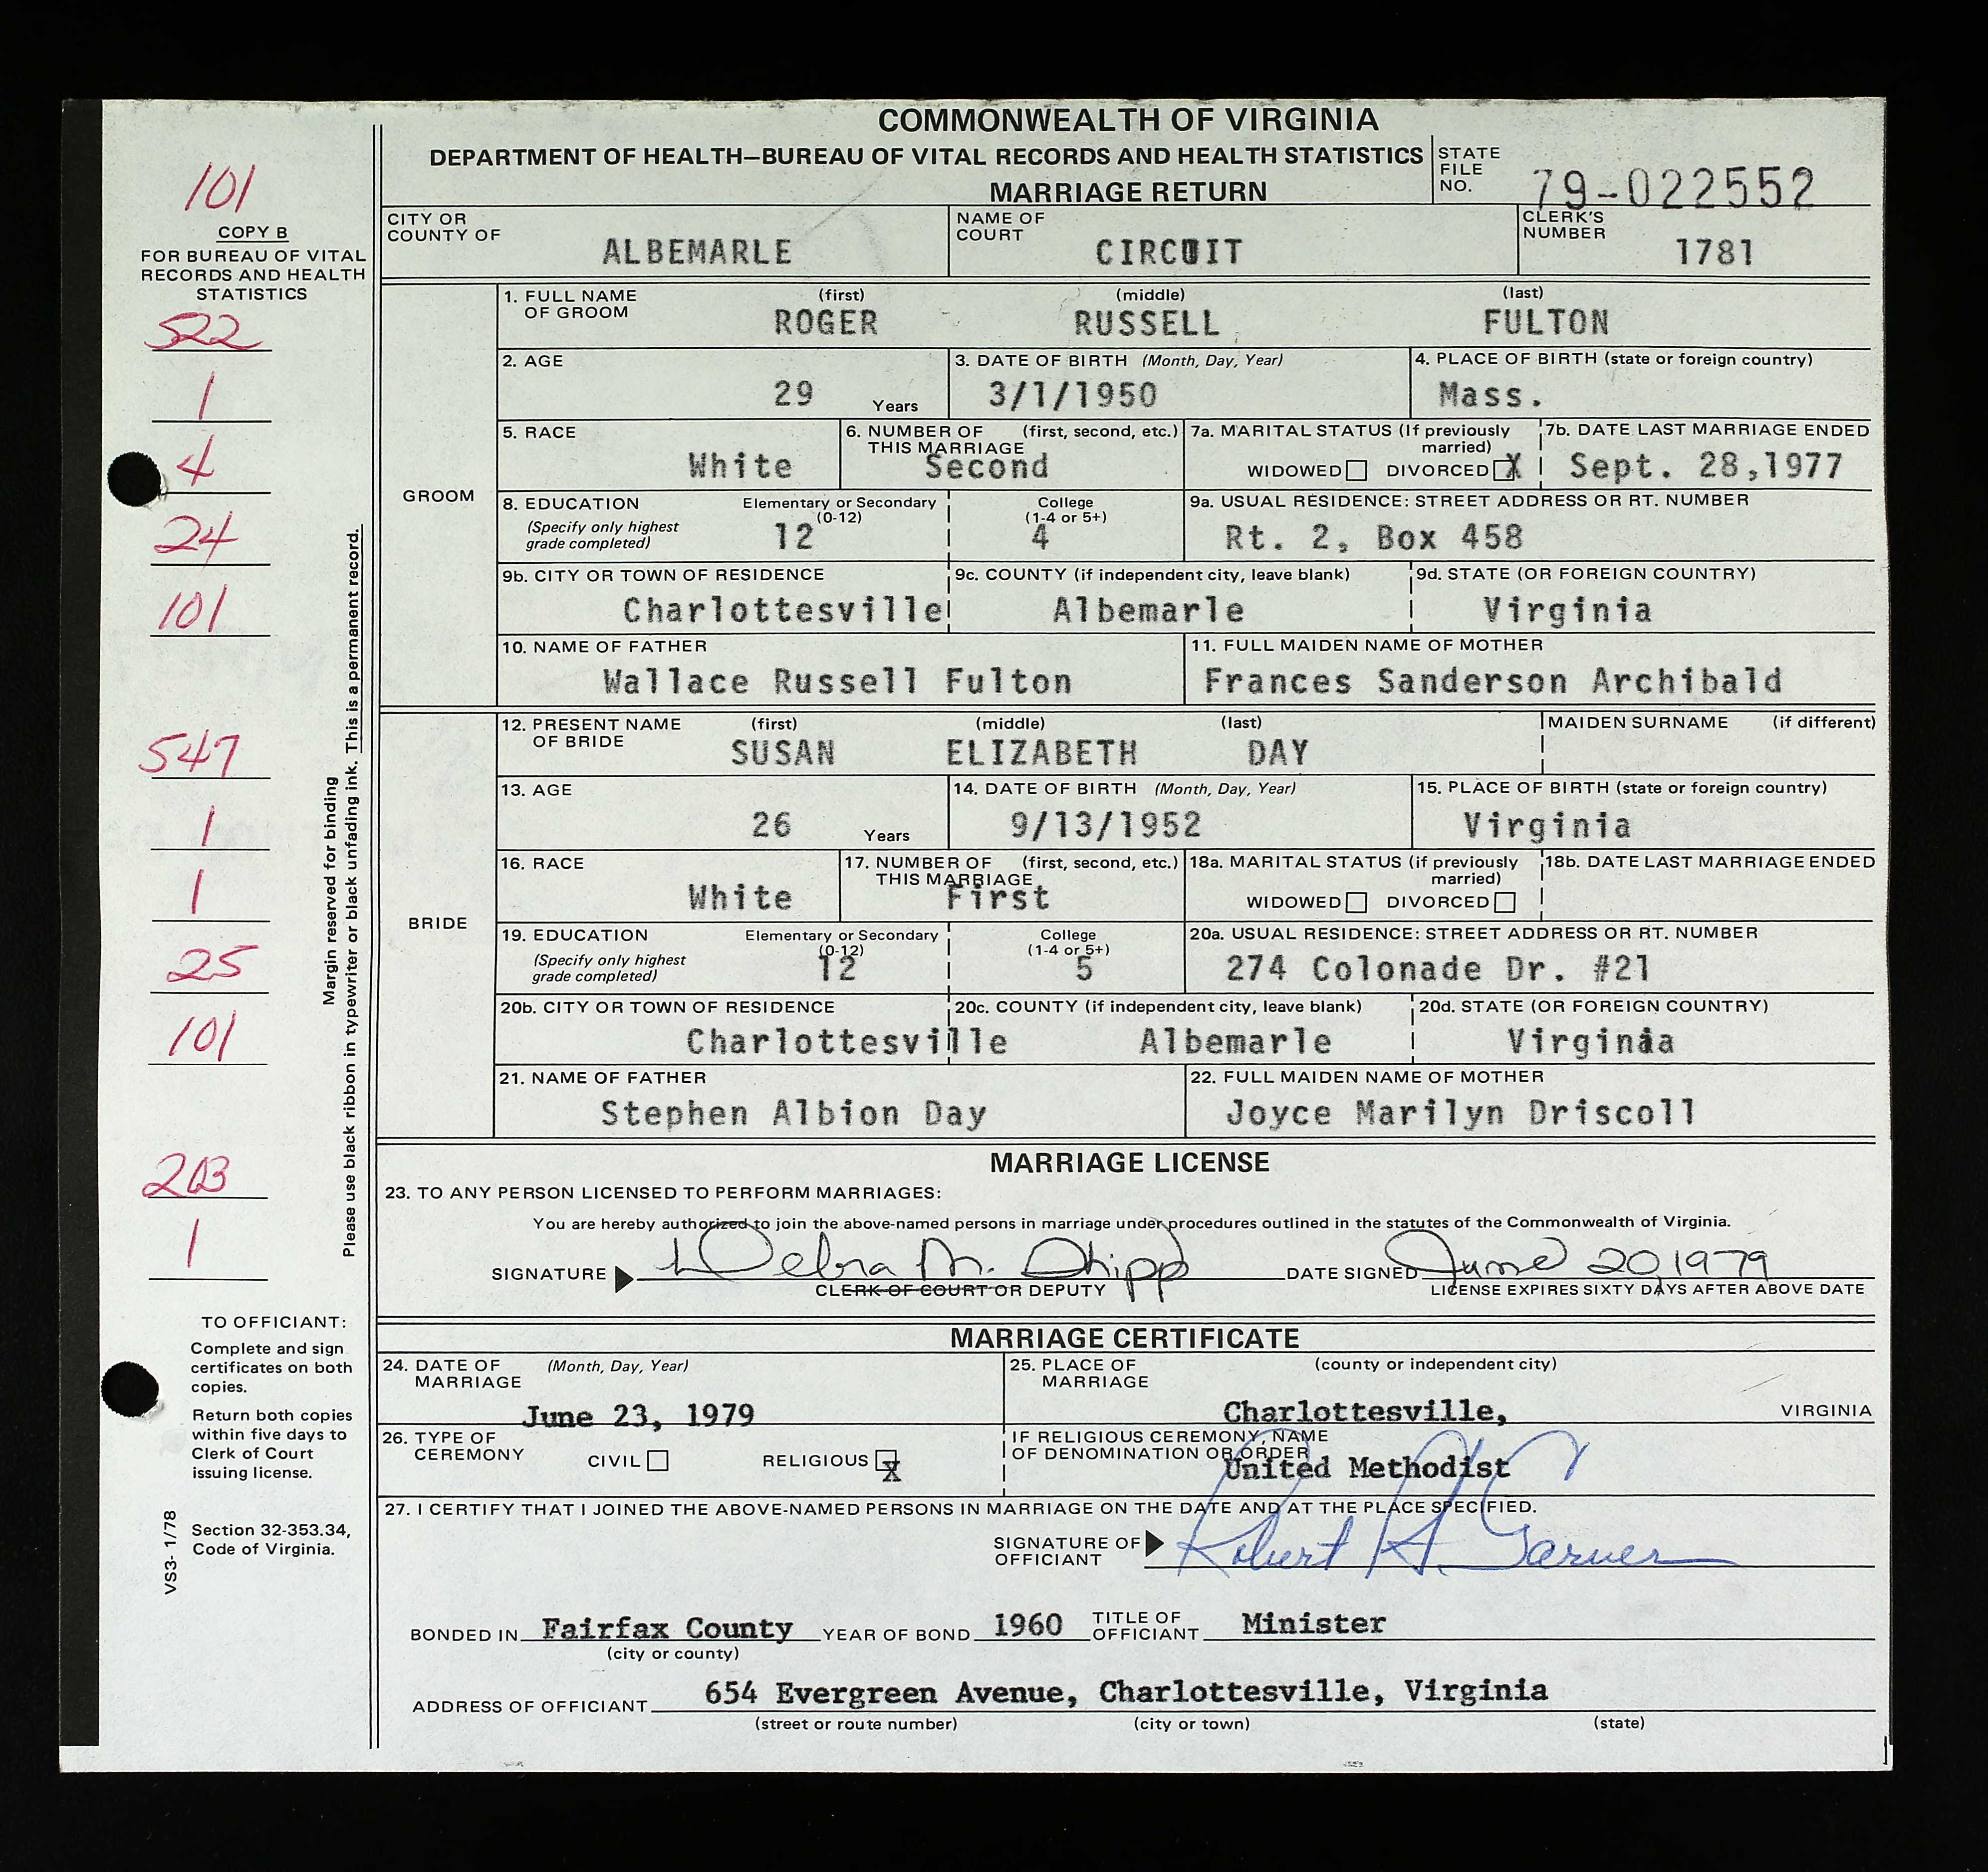 COMMONWEALTH OF VIRGINIA
DEPARTMENT OF HEALTH—BUREAU OF VITAL RECORDS AND HEALTH STATISTICS
MARRIAGE RETURN
STATE FILE NO. 79-022552
CITY OR COUNTY OF ALBEMARLE
NAME OF COURT CIRCUIT
CLERK'S NUMBER 1781
101
COPY B
FOR BUREAU OF VITAL
RECORDS AND HEALTH
STATISTICS
522
1
4
24
101
547
1
1
25
101
1
Margin reserved for binding
Please use black ribbon in typewriter or black unfading ink. This is a permanent record.
GROOM
1. FULL NAME OF GROOM (first) ROGER (middle) RUSSELL (last) FULTON
2. AGE 29 Years
3. DATE OF BIRTH (Month, Day, Year) 3/1/1950
4. PLACE OF BIRTH (state or foreign country) Mass.
5. RACE White
6. NUMBER OF THIS MARRIAGE (first, second, etc.) Second
7a. MARITAL STATUS (If previously married) WIDOWED DIVORCED X
7b. DATE LAST MARRIAGE ENDED Sept. 28,1977
8. EDUCATION (Specify only highest grade completed) Elementary or Secondary (0-12) 12 College (1-4 or 5+) 4
9a. USUAL RESIDENCE: STREET ADDRESS OR RT. NUMBER Rt. 2, Box 458
9b. CITY OR TOWN OF RESIDENCE Charlottesville
9c. COUNTY (if independent city, leave blank) Albemarle
9d. STATE (OR FOREIGN COUNTRY) Virginia
10. NAME OF FATHER Wallace Russell Fulton
11. FULL MAIDEN NAME OF MOTHER Frances Sanderson Archibald
BRIDE
12. PRESENT NAME OF BRIDE (first) SUSAN (middle) ELIZABETH (last) DAY MAIDEN SURNAME (if different)
13. AGE 26 Years
14. DATE OF BIRTH (Month, Day, Year) 9/13/1952
15. PLACE OF BIRTH (state or foreign country) Virginia
16. RACE White
17. NUMBER OF THIS MARRIAGE (first, second, etc.) First
18a. MARITAL STATUS (if previously married) WIDOWED DIVORCED
18b. DATE LAST MARRIAGE ENDED
19. EDUCATION (Specify only highest grade completed) Elementary or Secondary (0-12) 12 College (1-4 or 5+) 5
20a. USUAL RESIDENCE: STREET ADDRESS OR RT. NUMBER 274 Colonade Dr. #21
20b. CITY OR TOWN OF RESIDENCE Charlottesville
20c. COUNTY (if independent city, leave blank) Albemarle
20d. STATE (OR FOREIGN COUNTRY) Virginia
21. NAME OF FATHER Stephen Albion Day
22. FULL MAIDEN NAME OF MOTHER Joyce Marilyn Driscoll
MARRIAGE LICENSE
23. TO ANY PERSON LICENSED TO PERFORM MARRIAGES:
You are hereby authorized to join the above-named persons in marriage under procedures outlined in the statutes of the Commonwealth of Virginia.
SIGNATURE Debra M. Shipp DATE SIGNED June 20, 1979
CLERK OF COURT OR DEPUTY LICENSE EXPIRES SIXTY DAYS AFTER ABOVE DATE
MARRIAGE CERTIFICATE
24. DATE OF MARRIAGE (Month, Day, Year) June 23, 1979
25. PLACE OF MARRIAGE (county or independent city) Charlottesville, VIRGINIA
26. TYPE OF CEREMONY CIVIL RELIGIOUS X
IF RELIGIOUS CEREMONY, NAME OF DENOMINATION OR ORDER United Methodist
27. I CERTIFY THAT I JOINED THE ABOVE-NAMED PERSONS IN MARRIAGE ON THE DATE AND AT THE PLACE SPECIFIED.
SIGNATURE OF OFFICIANT Robert H. Garner
BONDED IN Fairfax County YEAR OF BOND 1960 TITLE OF OFFICIANT Minister
(city or county)
ADDRESS OF OFFICIANT 654 Evergreen Avenue, Charlottesville, Virginia
(street or route number) (city or town) (state)
TO OFFICIANT:
Complete and sign
certificates on both
copies.
Return both copies
within five days to
Clerk of Court
issuing license.
Section 32-353.34,
Code of Virginia.
VS3- 1/78